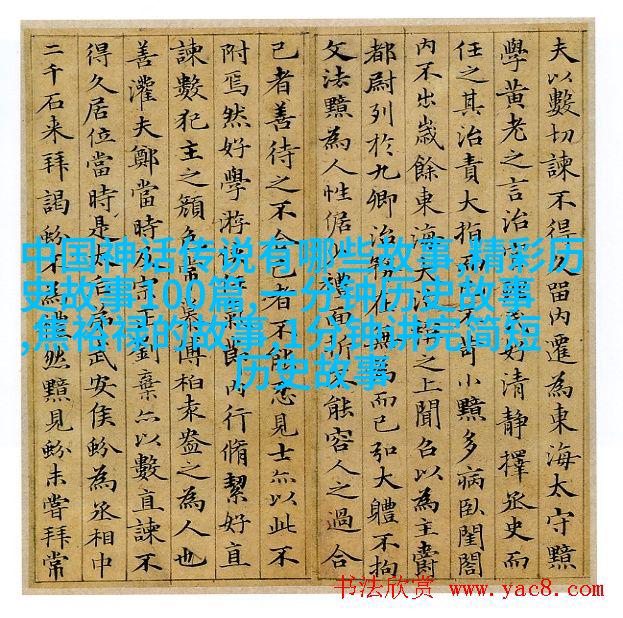 夫以數切諫不得久留內遷為東海太守黯
學黃老之言治官民好清靜擇丞史而
任之其治責大指而不苛小黯多病臥閨閤
內不出歲餘東海大治稱之上聞召以為主爵
都尉列於九卿治務在無為而已弘大體不拘
文法黯為人性倨少禮面折不能容人之過合
己者善待之不合己者不能忍見士亦以此不
附焉然好學游俠任氣節內行脩絜好直
諫數犯主之顏色常慕傅柏袁盎之為人也
善灌夫鄭當時及宗正劉棄亦以數直諫不
得久居位當時是太后弟武安侯蚡為丞相中
二千石来拜謁蚡不為禮然黯見蚡未嘗拜常
中国神话传说有哪些故事,精彩历
史故事100篇,一分钟历史故事
,焦裕禄的故事,1分钟讲完简短
历史故事
书法欣赏 www.yac8.com